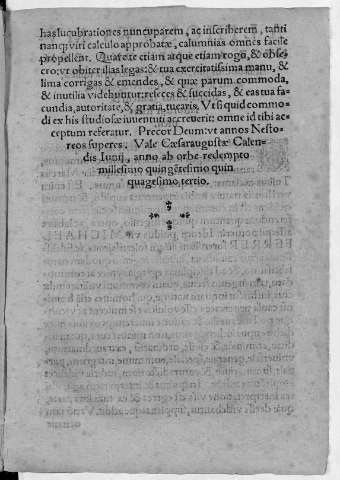 has lucubrationes nuncuparem, ac inscriberem, tanti
nanq; viri calculo approbatæ, calumnias omnes facile
propellent. Quare te etiam atque etiam rogo, & obse-
cro: vt obiter illas legas: & tua exercitatissima manu, &
lima corrigas & emendes, & quæ parum commoda,
& inutilia videbuntur: reseces & succidas, & eas tua fa-
cundia, autoritate, & gratia tuearis. Vt si quid commo-
di ex his studiosæ iuuentuti accreuerit: omne id tibi ac-
ceptum referatur. Precor Deum: vt annos Nesto-
reos superes. Vale Cæsaraugustæ Calen-
dis Iunij, anno ab orbe redempto
millesimo quingẽtesimo quin
quagesimo tertio.